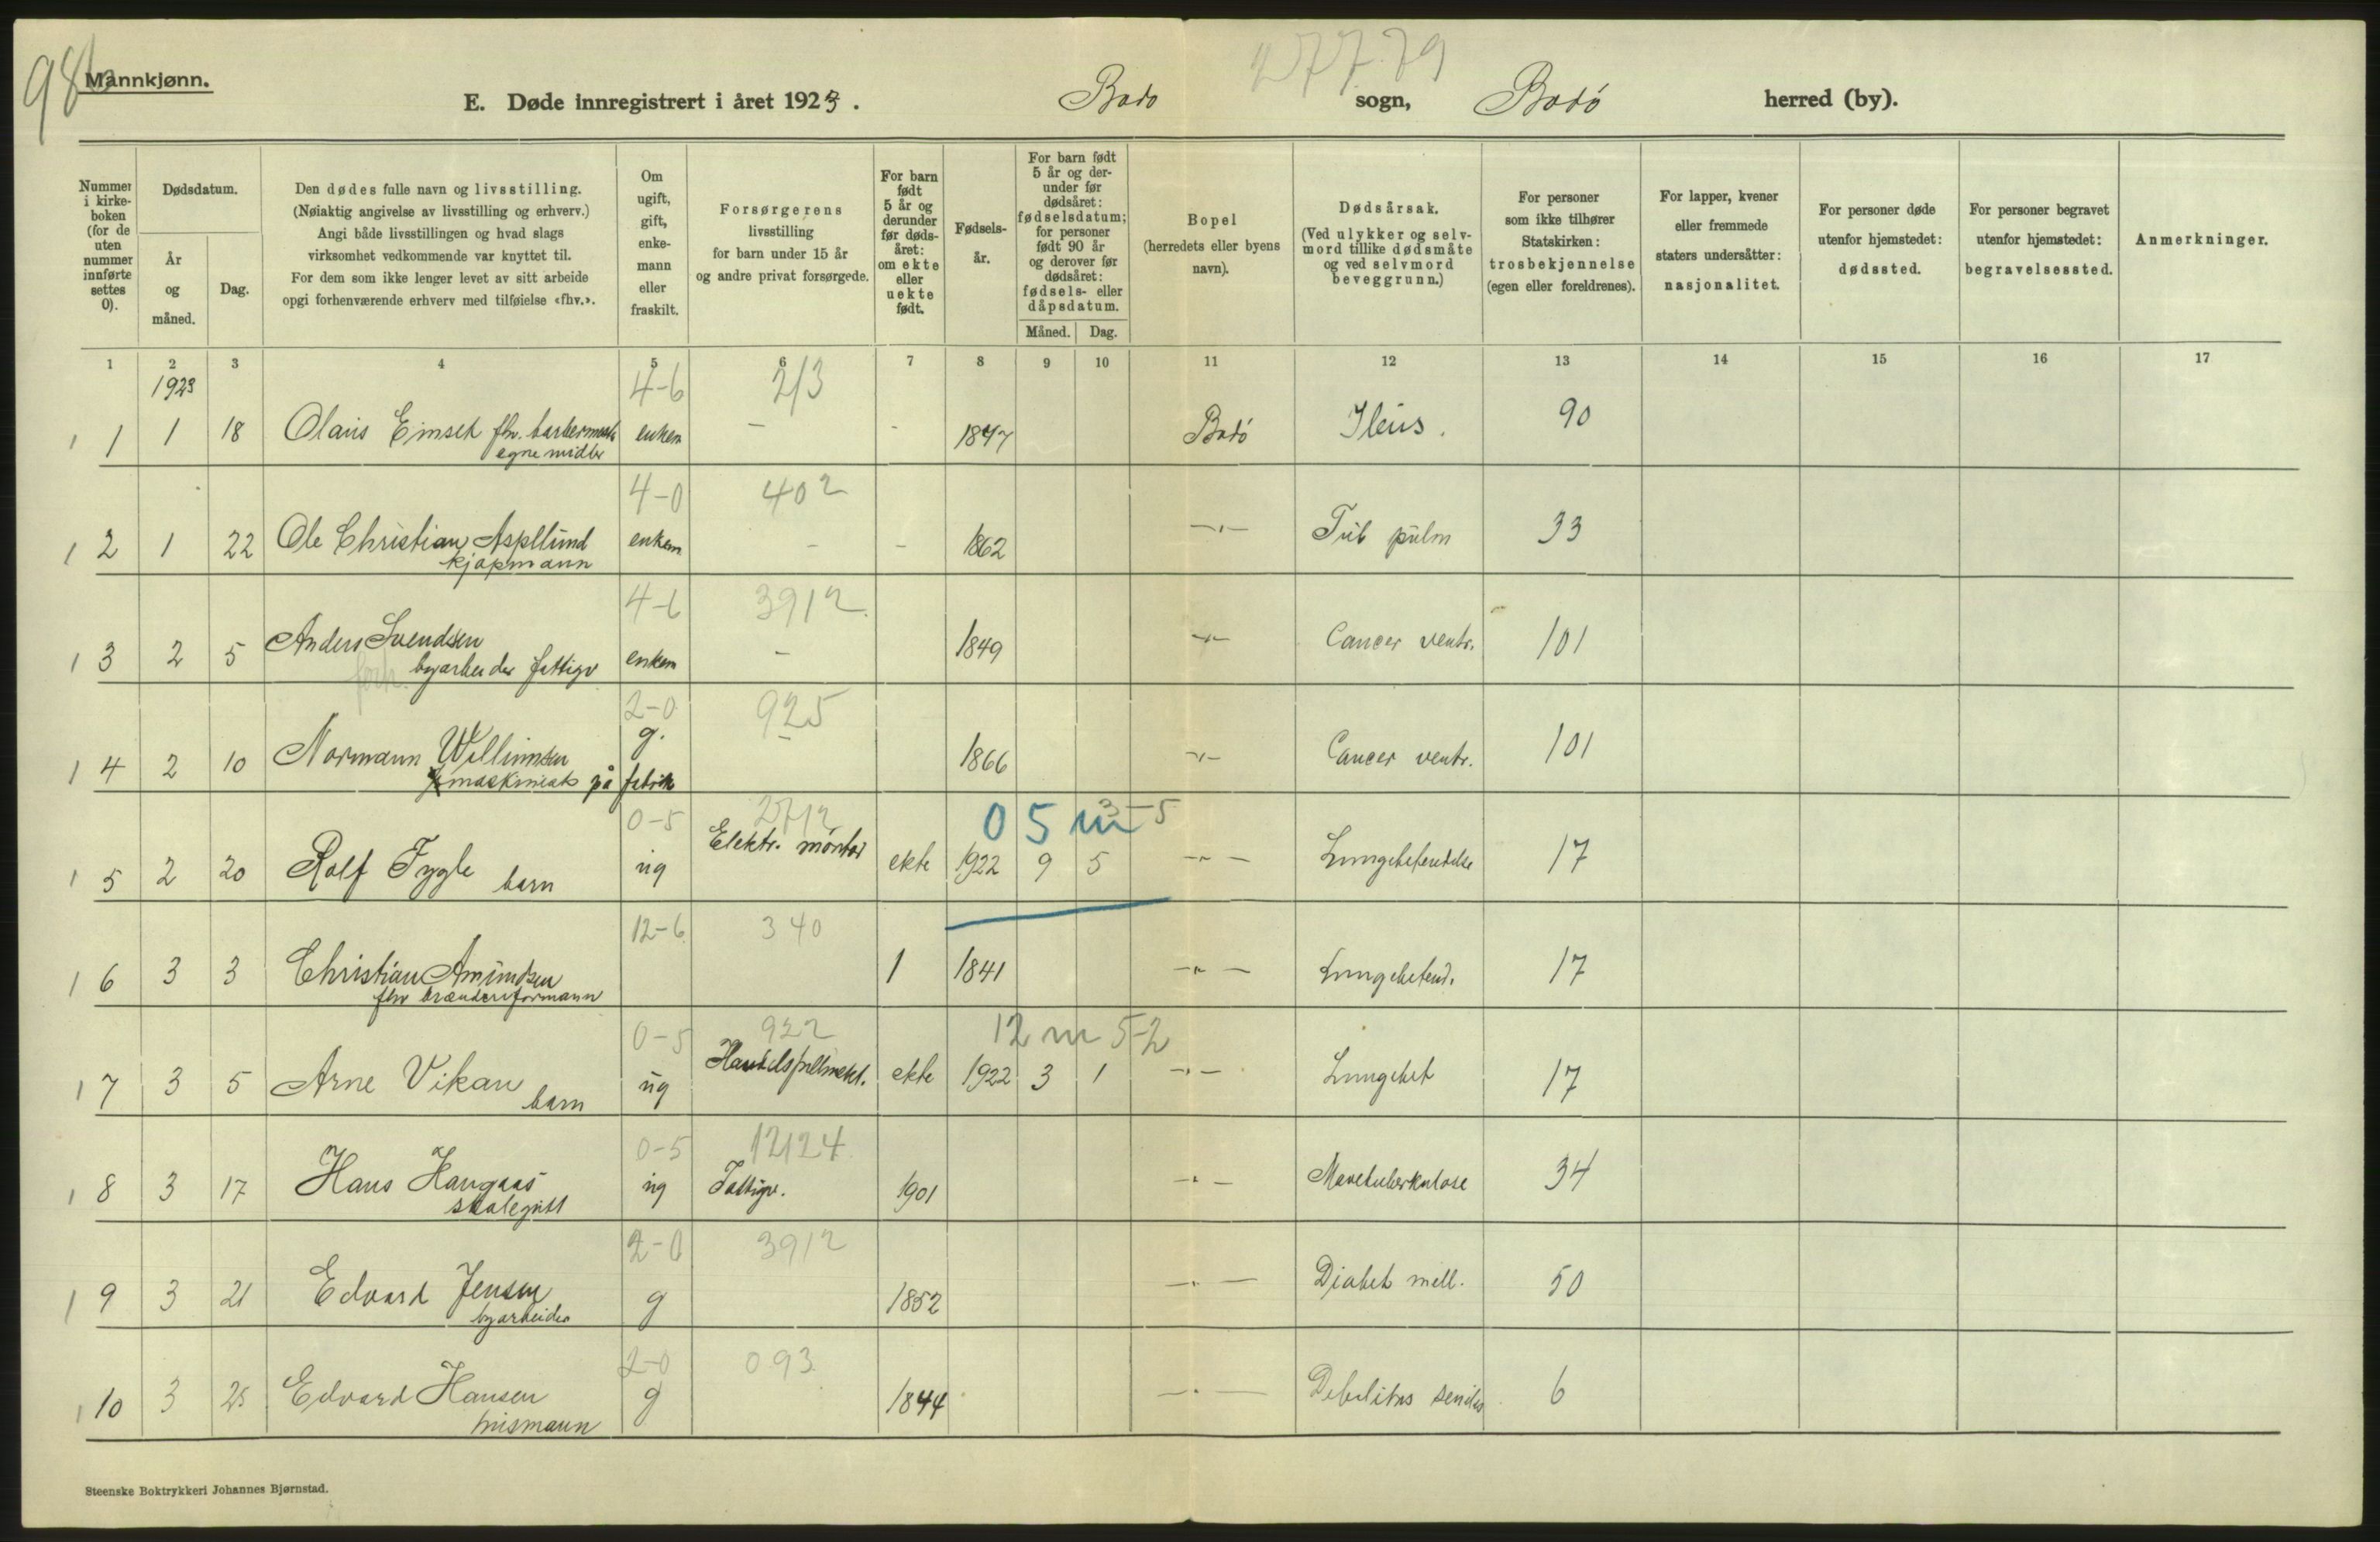 98b
Mannkjønn.
27779
E. Døde innregistrert i året 1923. Bodo sogn, Bodó herred (by).
Nummer i kirke-boken (for de uten nummer innførte settes 0).
Dødsdatum.
År og måned.
Dag.
Den dødes fulle navn og livsstilling.
(Nøiaktig angivelse av livsstilling og erhverv.)
Angi både livsstillingen og hvad slags
virksomhet vedkommende var knyttet til.
For dem som ikke lenger levet av sitt arbeide
opgi forhenværende erhverv med tilføielse «fhv.».
Om ugift, gift, enke-mann eller fraskilt.
Forsørgerens
livsstilling
for barn under 15 år
og andre privat forsørgede.
For barn født 5 år og derunder før døds-året: om ekte eller uekte født.
Fødsels-år.
For barn født 5 år og der-under før dødsåret: fødselsdatum; for personer født 90 år og derover før dødsåret: fødsels- eller dåpsdatum.
Måned. Dag.
Bopel
(herredets eller byens
navn).
Dødsårsak.
(Ved ulykker og selv-
mord tillike dødsmåte
og ved selvmord
beveggrunn.)
For personer
som ikke tilhører
Statskirken:
trosbekjennelse
(egen eller foreldrenes).
For lapper, kvener
eller fremmede
staters undersåtter:
nasjonalitet.
For personer døde
utenfor hjemstedet:
dødssted.
For personer begravet
utenfor hjemstedet:
begravelsessted.
Anmerkninger.
1 2 3 4 5 6 7 8 9 10 11 12 13 14 15 16 17
1923 4-6 2/3
1 1 1 18 Olaus Eimsek fhv. barbermest. enkem — - 1847 Bodó Ileus. 90
egne midler
4-0 402
1 2 1 22 Ole Christian Aspllund enkem - - 1862 —"— Tub pulm 33
kjøpmann
4-6 3912
1 3 2 5 Anders Svendsen enkem - 1849 —"— Cancer ventr. 101
forh. byarbeider fattigv
2-0 925
1 4 2 10 Normann Willumsen g. - 1866 —"— Cancer ventr. 101
maskinist på fabrik
0-5 2712 0 5 m 3-5
1 5 2 20 Rolf Tygle barn ug Elektr. montør ekte 1922 9 5 —"— Lungebetendelse 17
12-6 340
1 6 3 3 Christian Amundsen 1 1841 —"— Lungebetend. 17
fhv brænderiformann
0-5 922 12 m 5-2
1 7 3 5 Arne Vikan barn ug ekte 1922 3 1 —"— Lungebet 17
0-5 12124
1 8 3 17 Hans Haugaas ug Fattigv. 1901 —"— Mavetuberkulose 34
skolegutt
2-0 3912
1 9 3 21 Edvard Jensen g 1852 —"— Diabet mell. 50
byarbeider
2-0 093
1 10 3 25 Edvard Hansen g 1844 —"— Debilitas senilis 6
husmann
Steenske Boktrykkeri Johannes Bjørnstad.